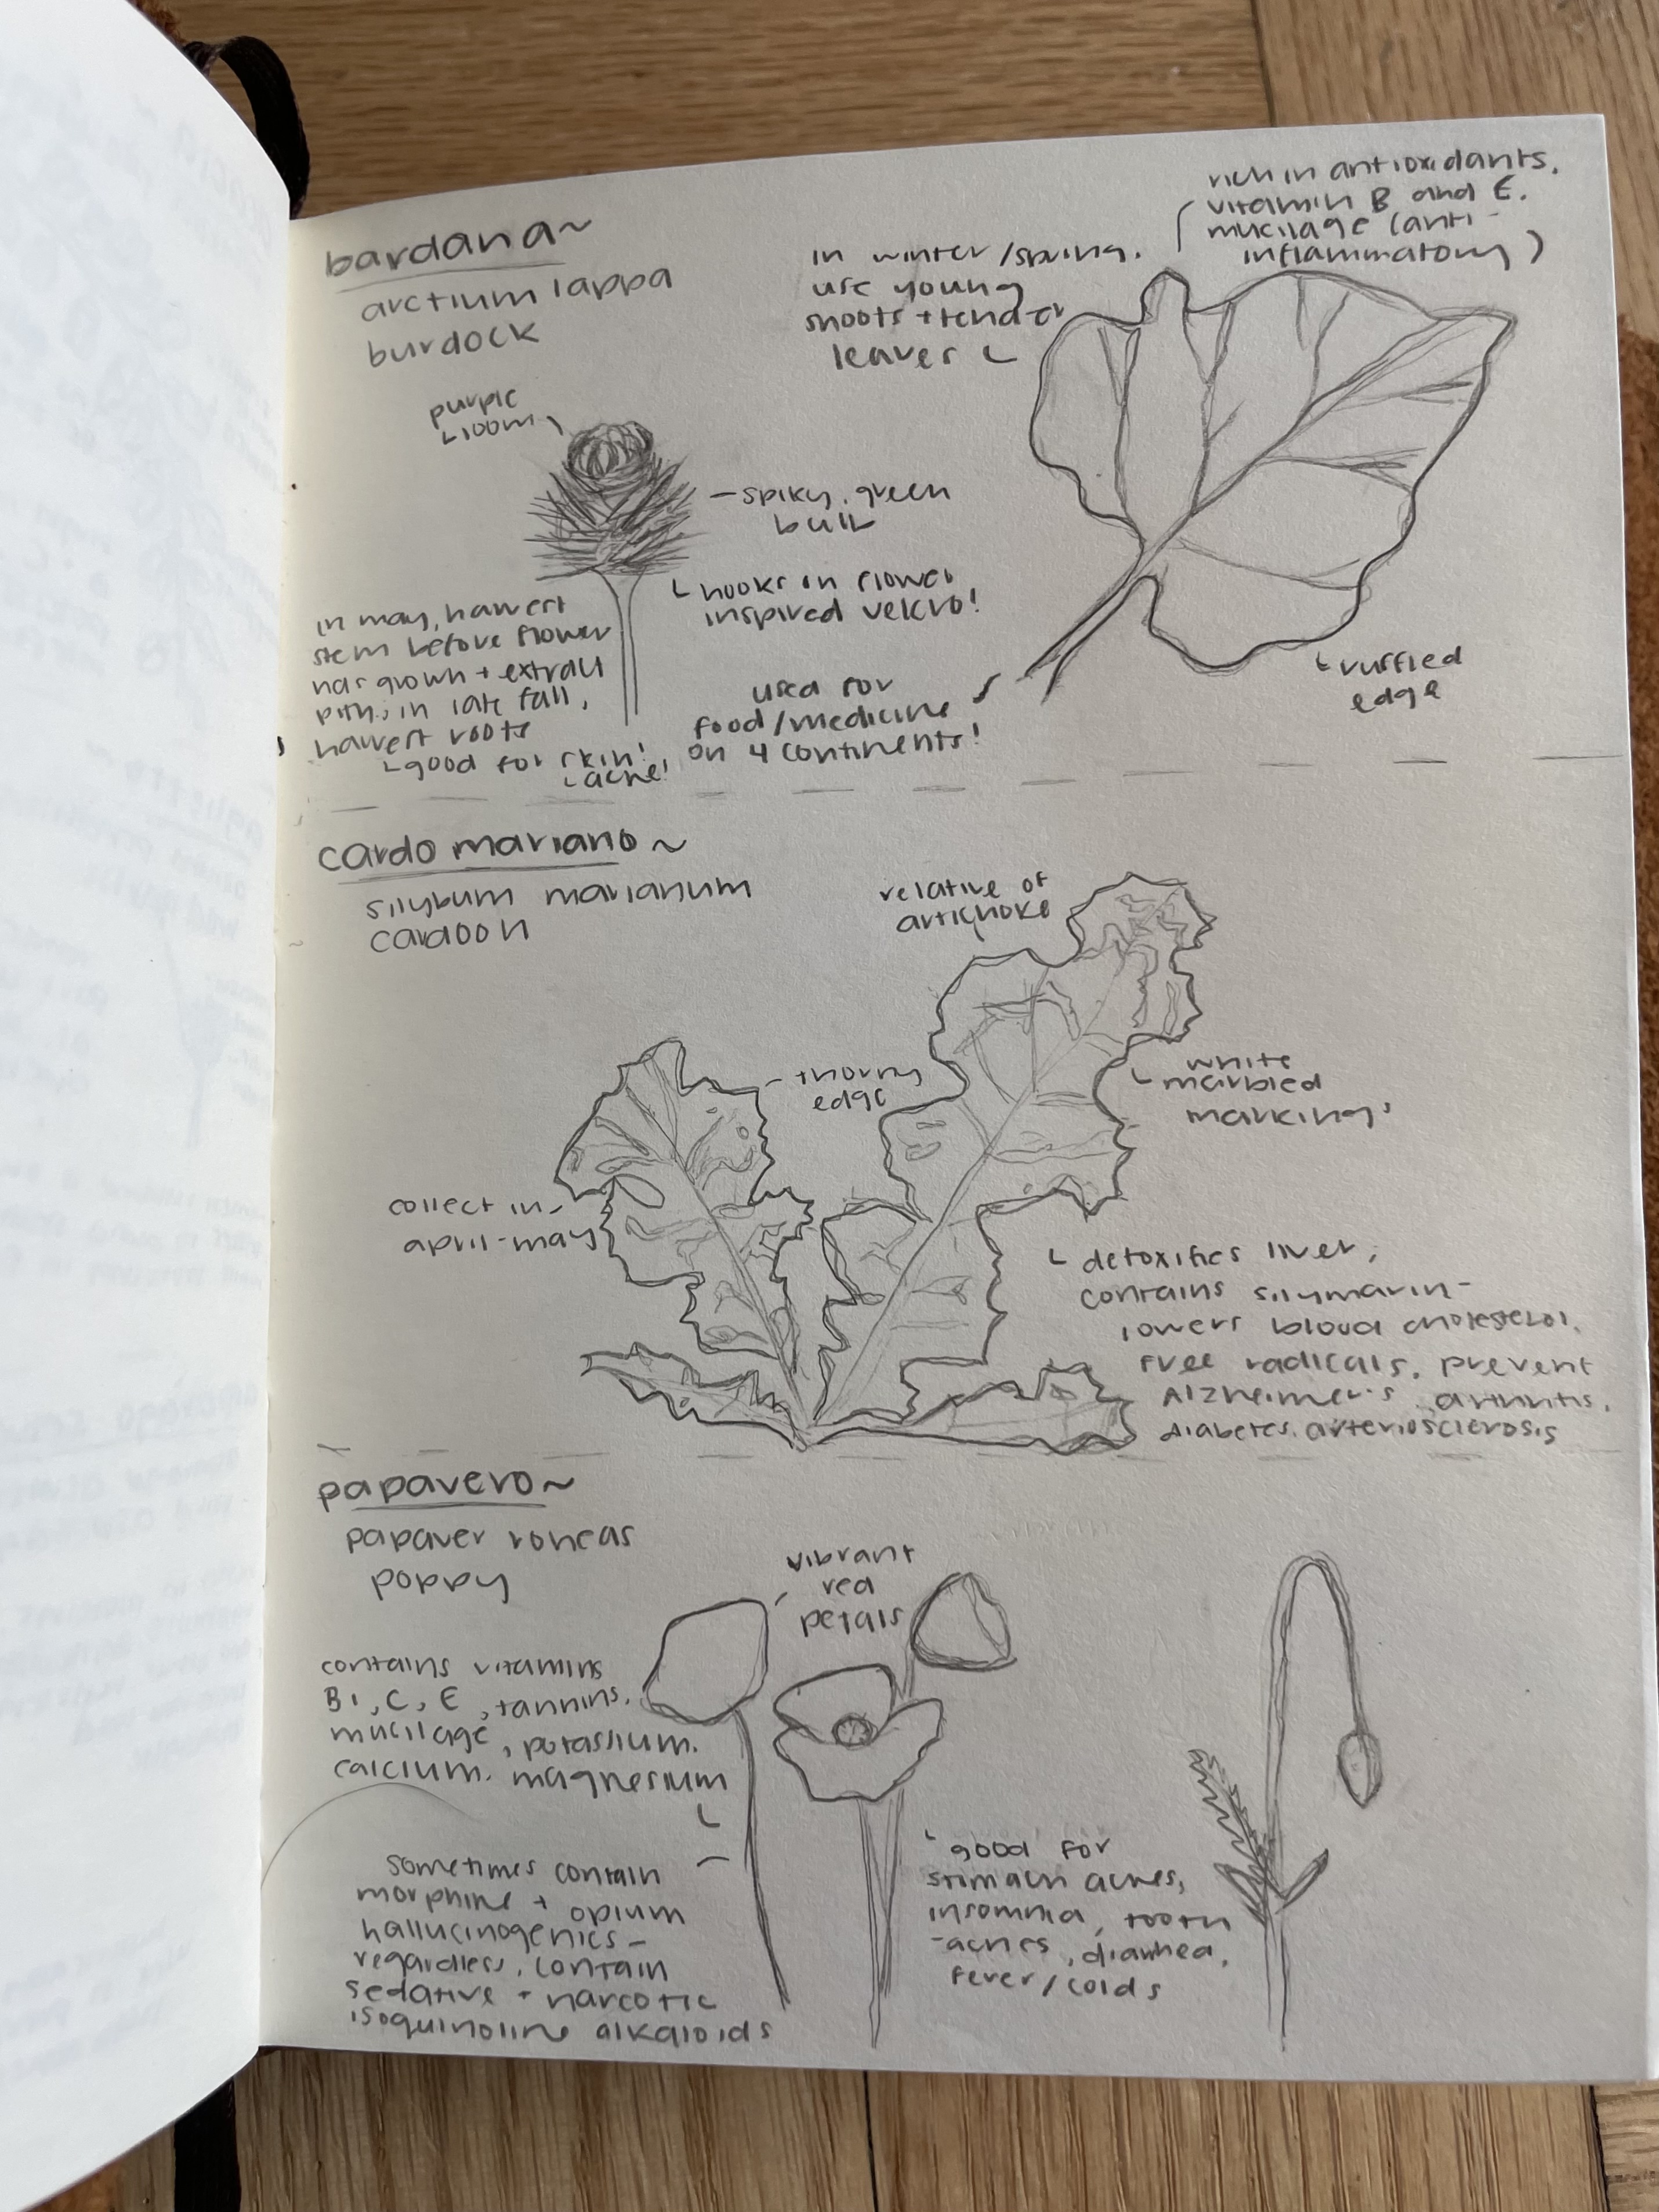 bardana~
arctium lappa
burdock
in winter/spring,
use young
shoots + tender
leaves
rich in antioxidants,
vitamin B and E,
mucilage (anti-
inflammatory)
purple
bloom
- spiky, green
bulb
hooks in flower
inspired velcro!
in may, harvest
stem before flower
has grown + extract
pith; in late fall,
harvest roots
good for skin!
acne!
used for
food/medicine
on 4 continents!
ruffled
edge
cardo mariano~
silybum marianum
cardoon
relative of
artichoke
- thorny
edge
white
marbled
markings
collect in
april-may
detoxifies liver,
contains silymarin-
lowers blood cholesterol,
free radicals, prevent
Alzheimer's, arthritis,
diabetes, arteriosclerosis
papavero~
papaver roheas
poppy
vibrant
red
petals
contains vitamins
B1, C, E, tannins,
mucilage, potassium,
calcium, magnesium
sometimes contain
morphine + opium
hallucinogenics-
regardless, contain
sedative + narcotic
isoquinoline alkaloids
good for
stomach aches,
insomnia, tooth
-aches, diarrhea,
fever/colds